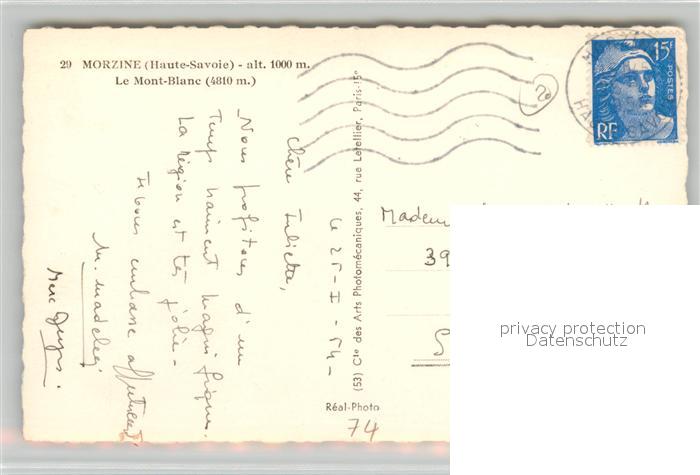 29 MORZINE (Haute-Savoie) - alt. 1000 m.
Le Mont-Blanc (4810 m.)
15F
POSTES
RF
20
le 25-I-54-
Chère Juliette,
Nous profitons d'un
temps vraiment magnifique.
La région est très jolie-
embrasse affectueusement
M. Madeleine
(53) Cie des Arts Photomécaniques, 44, rue Letellier, Paris-15e
Réal-Photo
74
Madem
39
S
privacy protection
Datenschutz